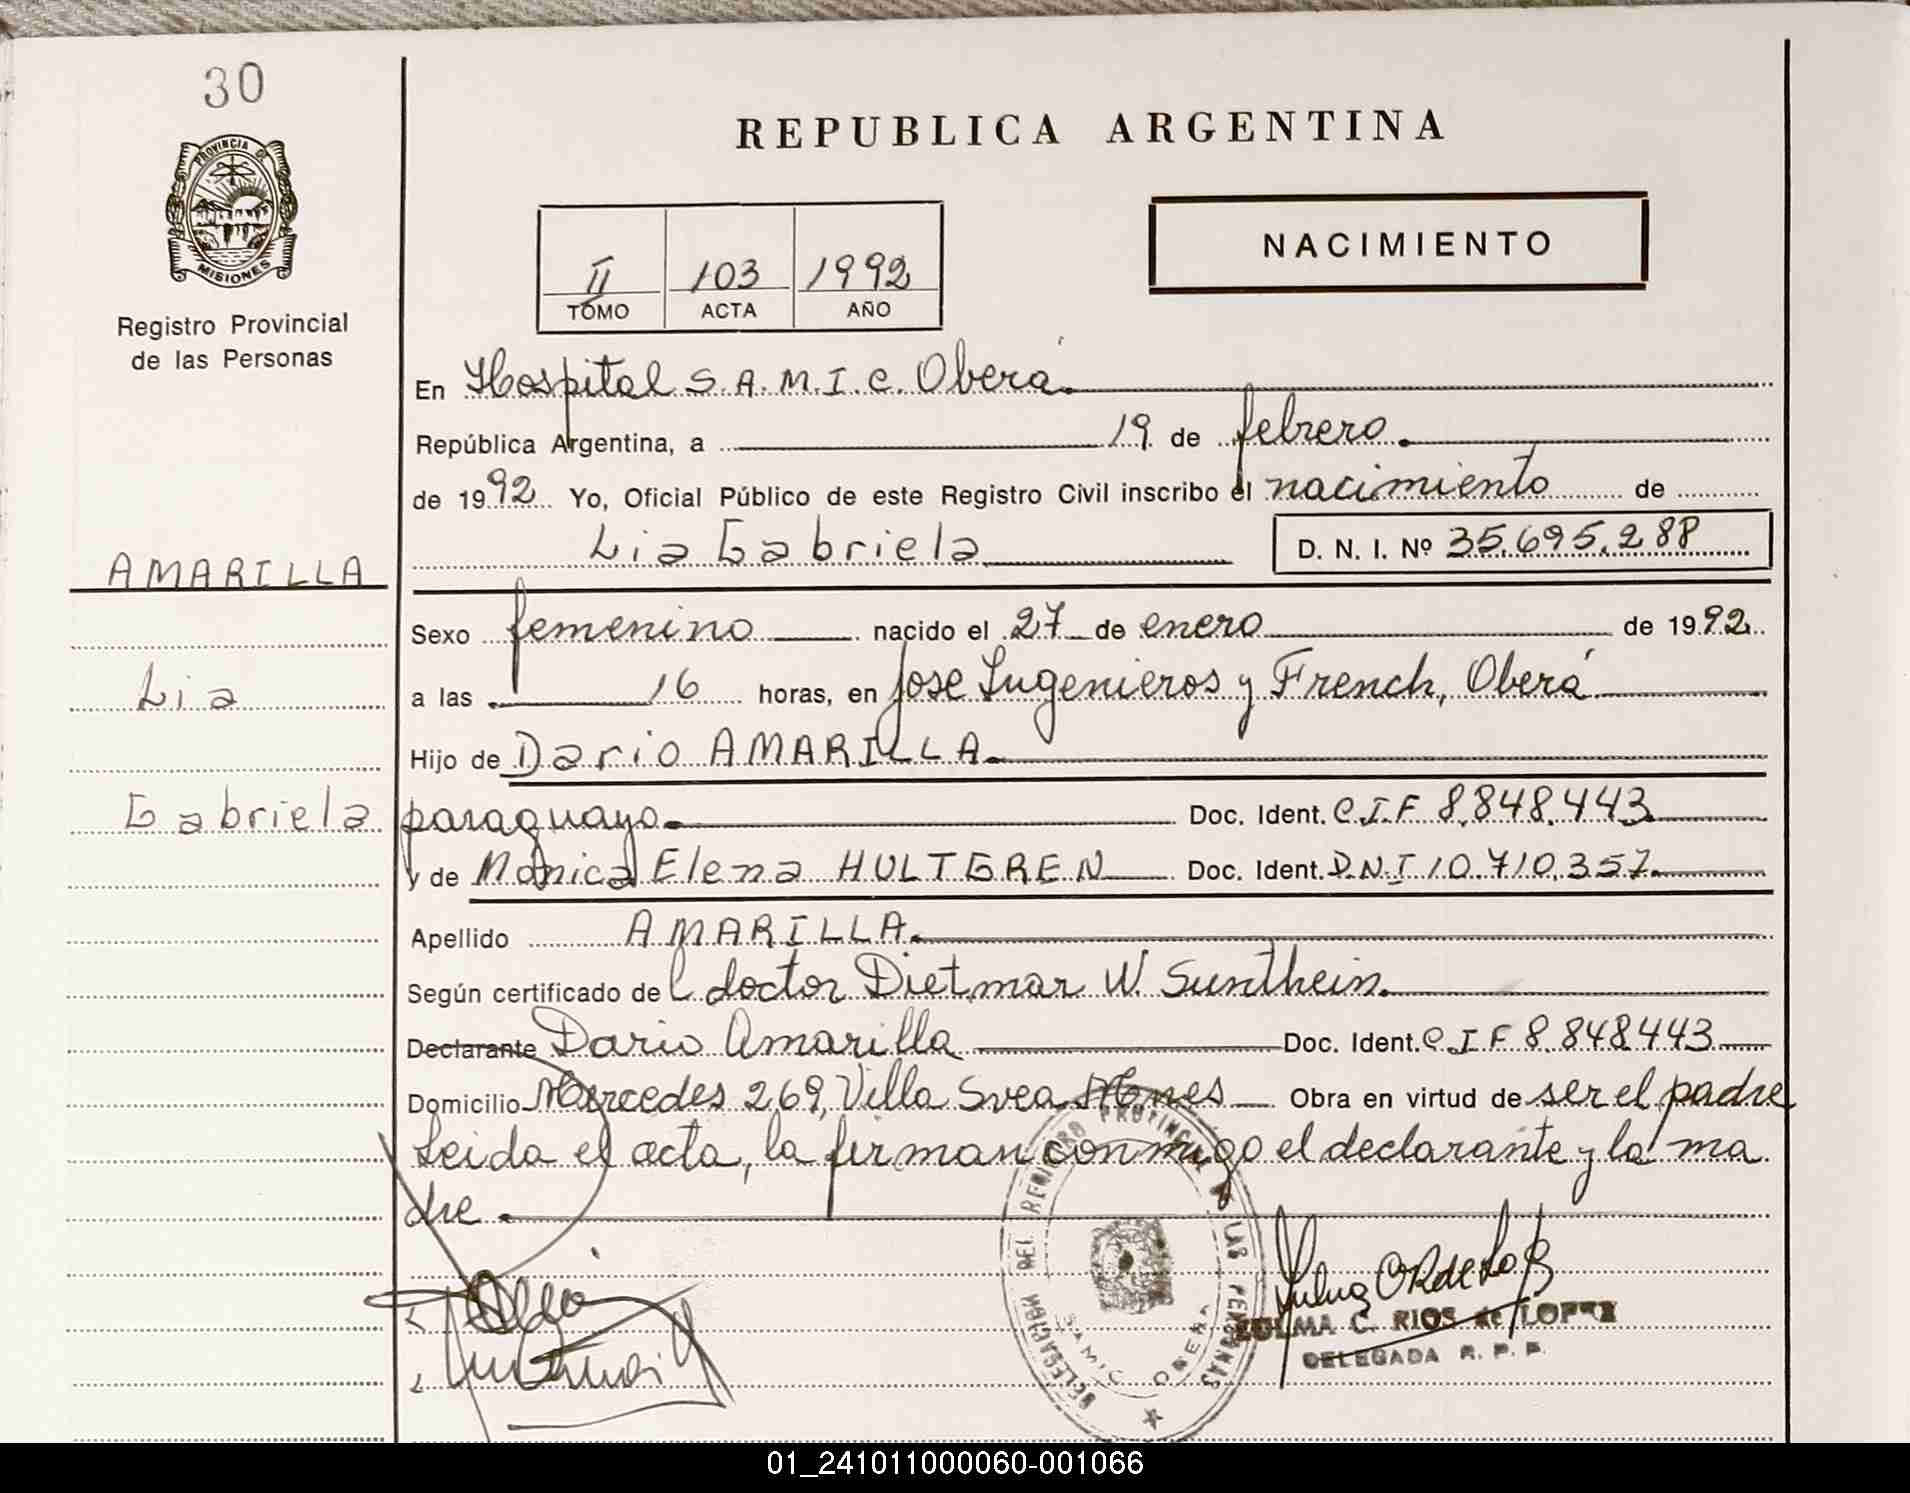 30
PROVINCIA DE
MISIONES
Registro Provincial
de las Personas
REPUBLICA ARGENTINA
II 103 1992
TOMO ACTA AÑO
NACIMIENTO
En Hospital S.A.M.I.C. Oberá
República Argentina, a 19 de febrero
de 1992 Yo, Oficial Público de este Registro Civil inscribo el nacimiento de
Lia Gabriela D. N. I. Nº 35.695.288
AMARILLA
Lia
Gabriela
Sexo femenino nacido el 27 de enero de 1992
a las 16 horas, en Jose Ingenieros y French, Oberá
Hijo de Dario AMARILLA
paraguayo Doc. Ident. C.I.F 8.848.443
y de Mónica Elena HULTGREN Doc. Ident. D.N.I 10.710.357
Apellido AMARILLA
Según certificado del doctor Dietmar W. Sunthein.
Declarante Dario Amarilla Doc. Ident. C.I.F 8.848443
Domicilio Mercedes 269, Villa Svea Mnes Obra en virtud de ser el padre
Leida el acta, la firman conmigo el declarante y la ma
dre
DELEGACION DEL REGISTRO PROVINCIAL DE LAS PERSONAS
SAMIC OBERA
ZULMA C. RIOS de LOPEZ
DELEGADA R. P. P.
01_241011000060-001066